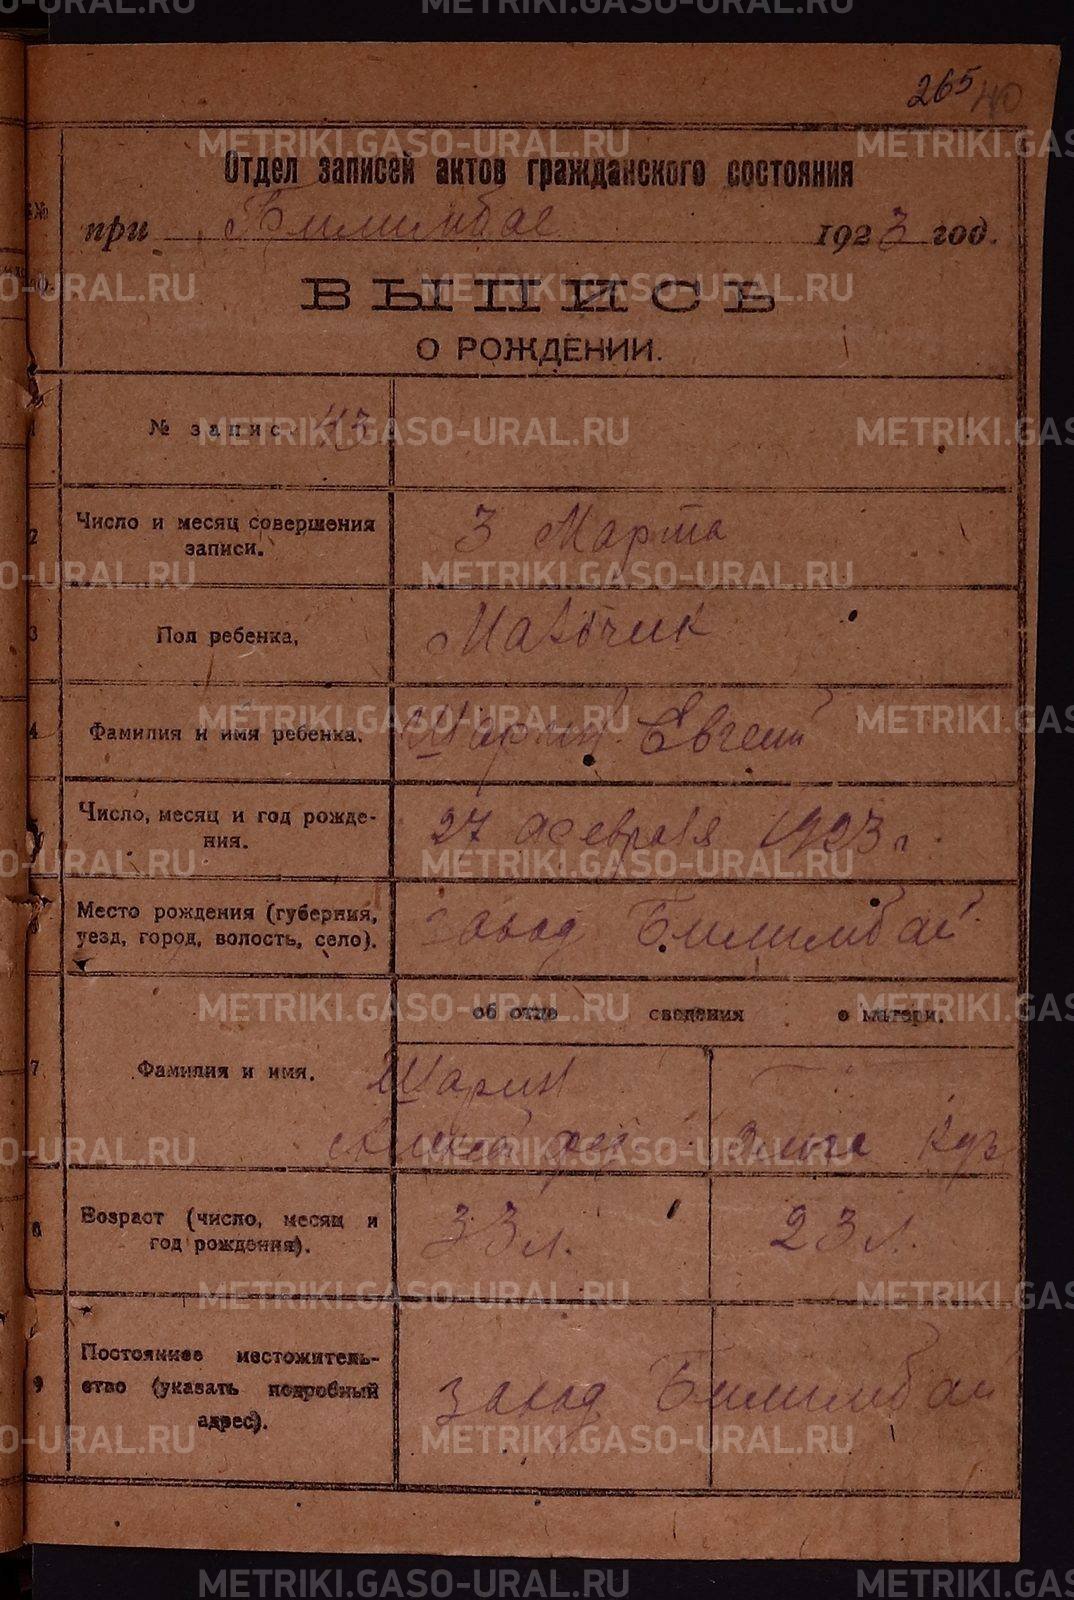 265 40
Отдел записей актов гражданского состояния
при Билимбае 1923 год.
ВЫПИСЬ
О РОЖДЕНИИ.
№ запис 43
2 Число и месяц совершения
записи.
3 Марта
3 Пол ребенка,
Мальчик
4 Фамилия и имя ребенка.
Шарин Евгений
Число, месяц и год рожде-
ния.
27 февраля 1923 г.
Место рождения (губерния,
уезд, город, волость, село).
завод Билимбай
об отце сведения о матери.
7 Фамилия и имя.
Шарин
8 Возраст (число, месяц и
год рождения).
33 л. 23 л.
9 Постоянное местожитель-
ство (указать подробный
адрес).
завод Билимбай
METRIKI.GASO-URAL.RU